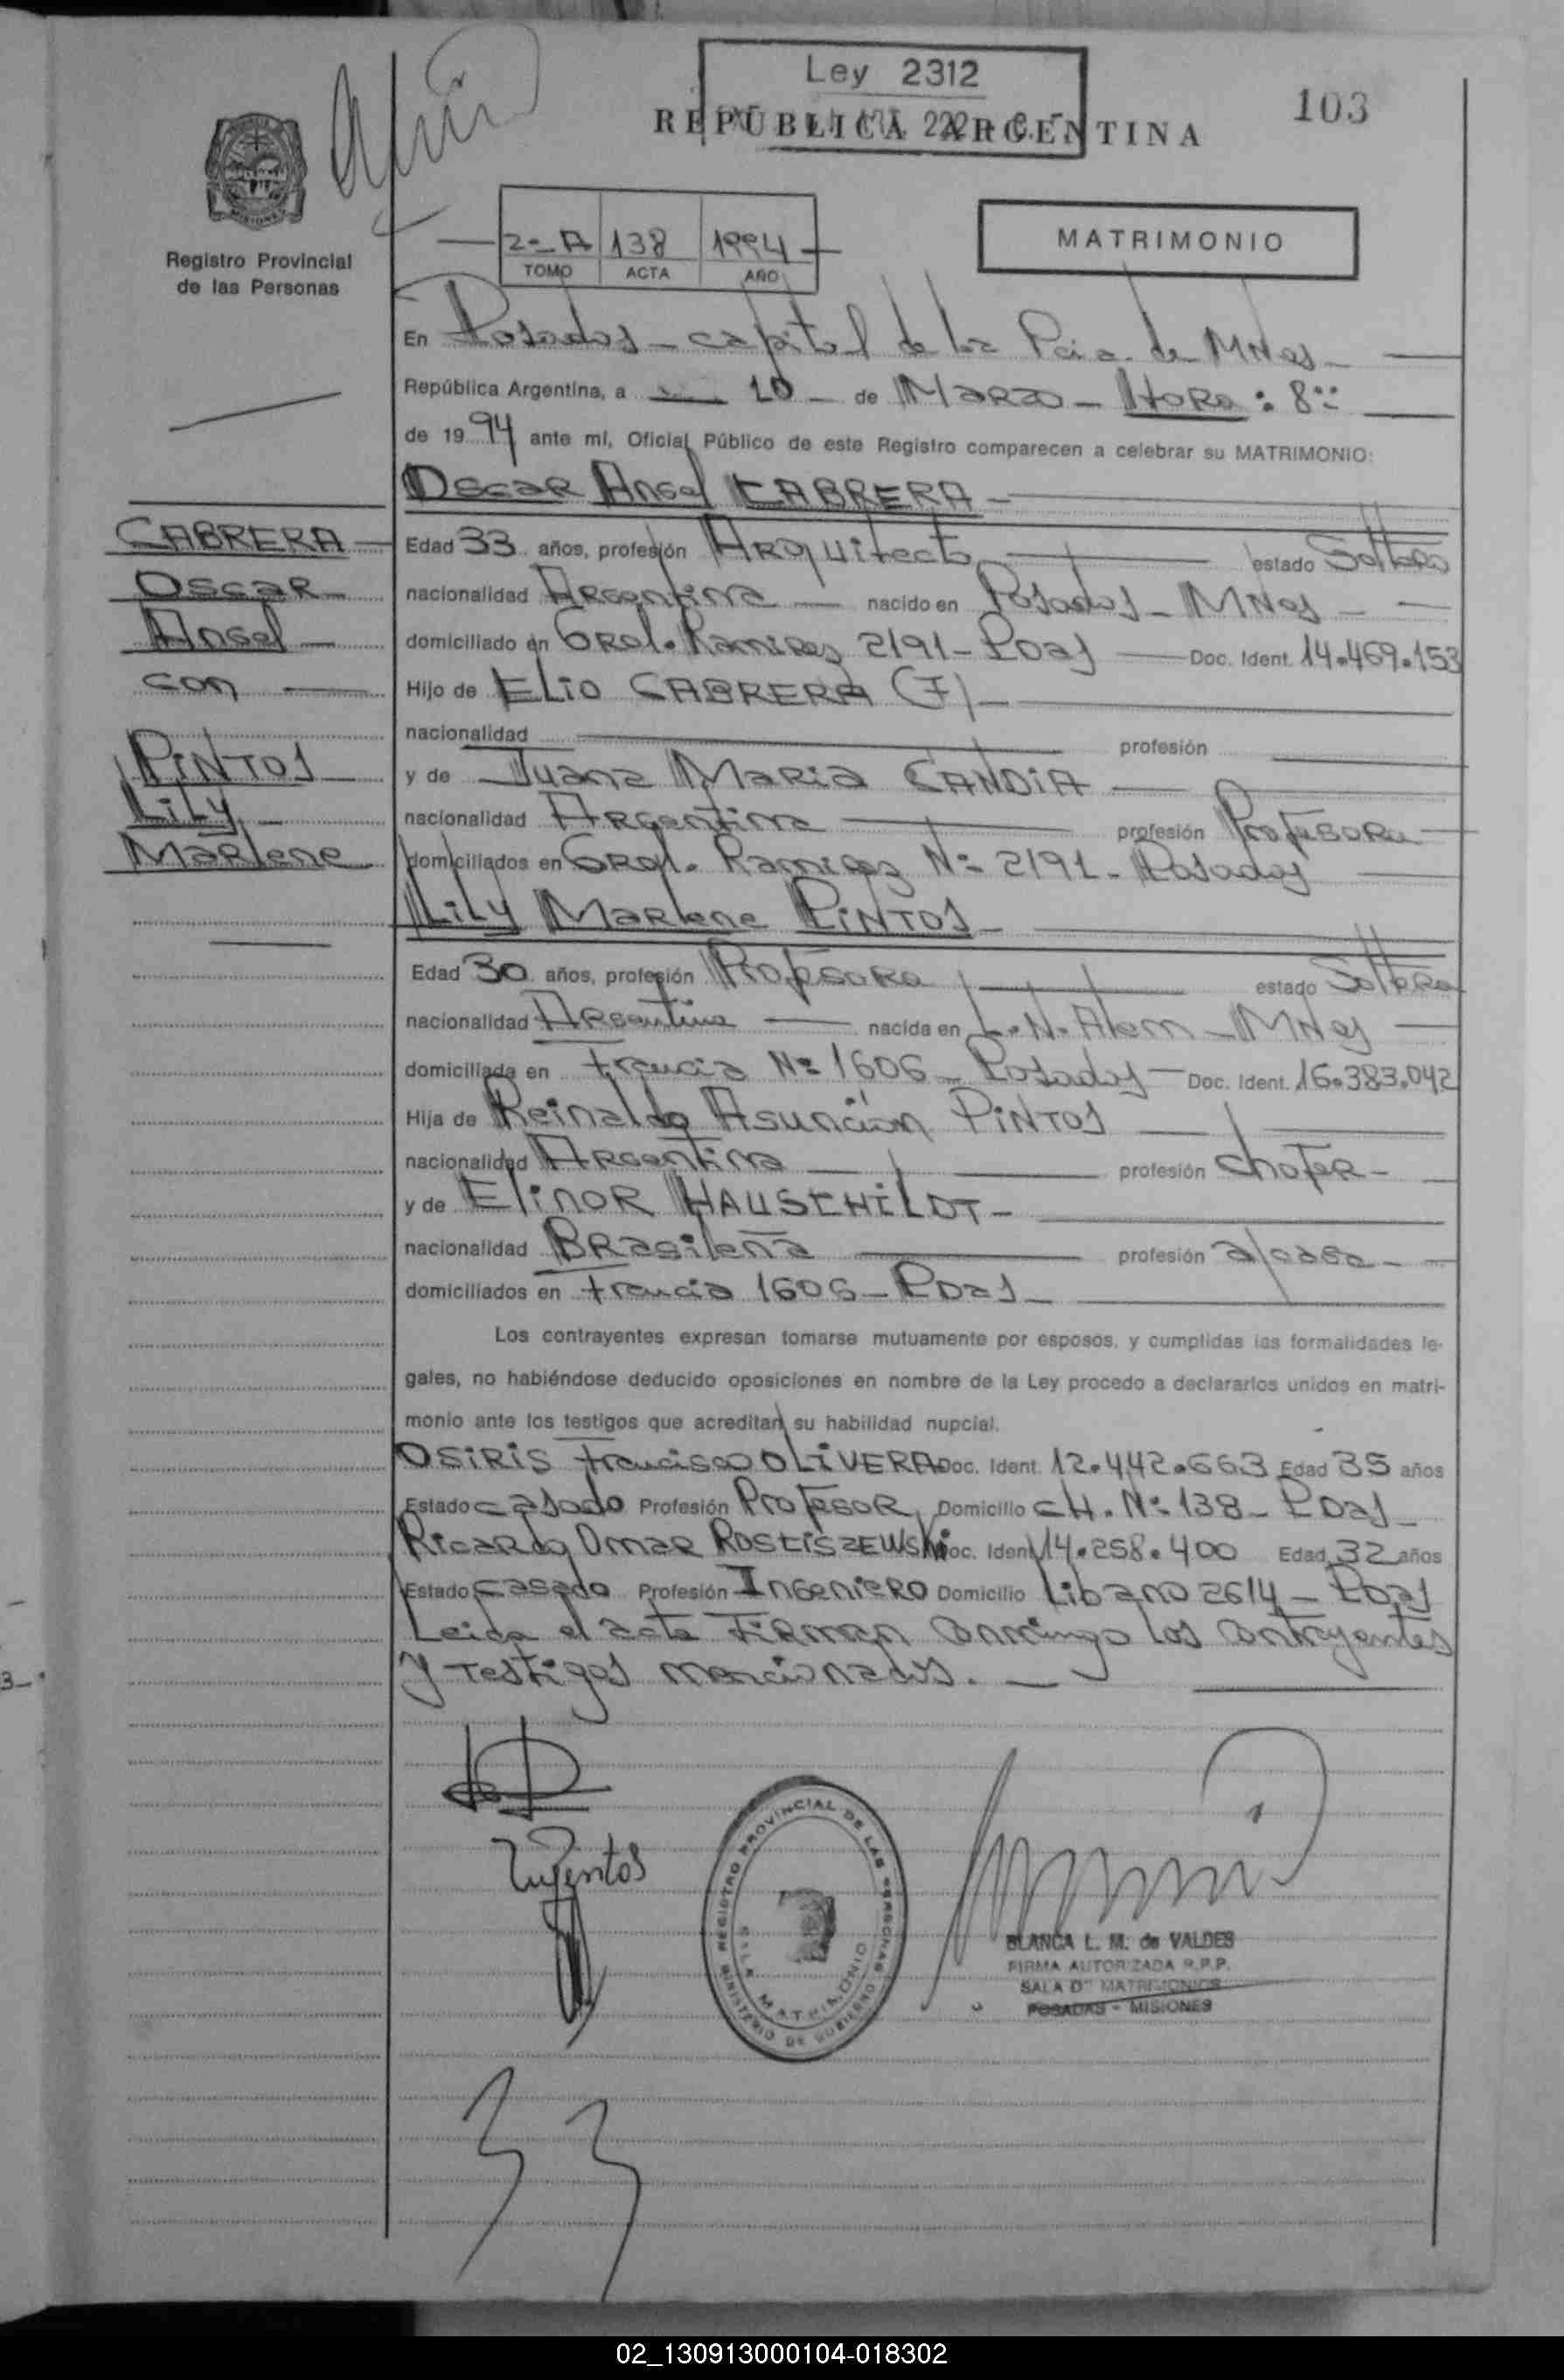 Ley 2312
103
REPÚBLICA ARGENTINA
2-A 138 1994
TOMO ACTA AÑO
MATRIMONIO
Registro Provincial
de las Personas
En Posadas - capital de la Pcia. de MNes -
República Argentina, a 10 - de Marzo - Hora: 8
de 1994 ante mí, Oficial Público de este Registro comparecen a celebrar su MATRIMONIO:
Oscar Angel CABRERA -
CABRERA
Oscar
Angel
con
PINTOS
Lily
Marlene
Edad 33 años, profesión Arquitecto estado Soltero
nacionalidad Argentina nacido en Posadas - MNes -
domiciliado en Gral. Ramirez 2191 - Pdas Doc. Ident. 14.469.153
Hijo de Elio CABRERA (F) -
nacionalidad profesión
y de Juana Maria CANDIA
nacionalidad Argentina profesión Profesora
domiciliados en Gral. Ramirez Nº 2191 - Posadas
Lily Marlene PINTOS -
Edad 30 años, profesión Profesora estado Soltera
nacionalidad Argentina nacida en L.N. Alem - MNes
domiciliada en Francia Nº 1606 - Posadas Doc. Ident. 16.383.042
Hija de Reinaldo Asunción PINTOS
nacionalidad Argentina profesión chofer -
y de Elinor HAUSCHILDT -
nacionalidad Brasileña profesión a/casa -
domiciliados en Francia 1606 - Pdas -
Los contrayentes expresan tomarse mutuamente por esposos, y cumplidas las formalidades le-
gales, no habiéndose deducido oposiciones en nombre de la Ley procedo a declararlos unidos en matri-
monio ante los testigos que acreditan su habilidad nupcial.
Osiris Francisco OLIVERA Doc. Ident. 12.442.663 Edad 35 años
Estado casado Profesión Profesor Domicilio CH. Nº 138 - Pdas -
Ricardo Omar ROSTISZEWSKI Doc. Ident. 14.258.400 Edad 32 años
Estado casado Profesión Ingeniero Domicilio Libano 2614 - Pdas
Leida el acta Firman conmigo los contrayentes
y testigos mencionados. -
REGISTRO PROVINCIAL DE LAS PERSONAS
SALA MATRIMONIO
MINISTERIO DE GOBIERNO
BLANCA L. M. de VALDES
FIRMA AUTORIZADA R.P.P.
SALA DE MATRIMONIOS
POSADAS - MISIONES
02_130913000104-018302